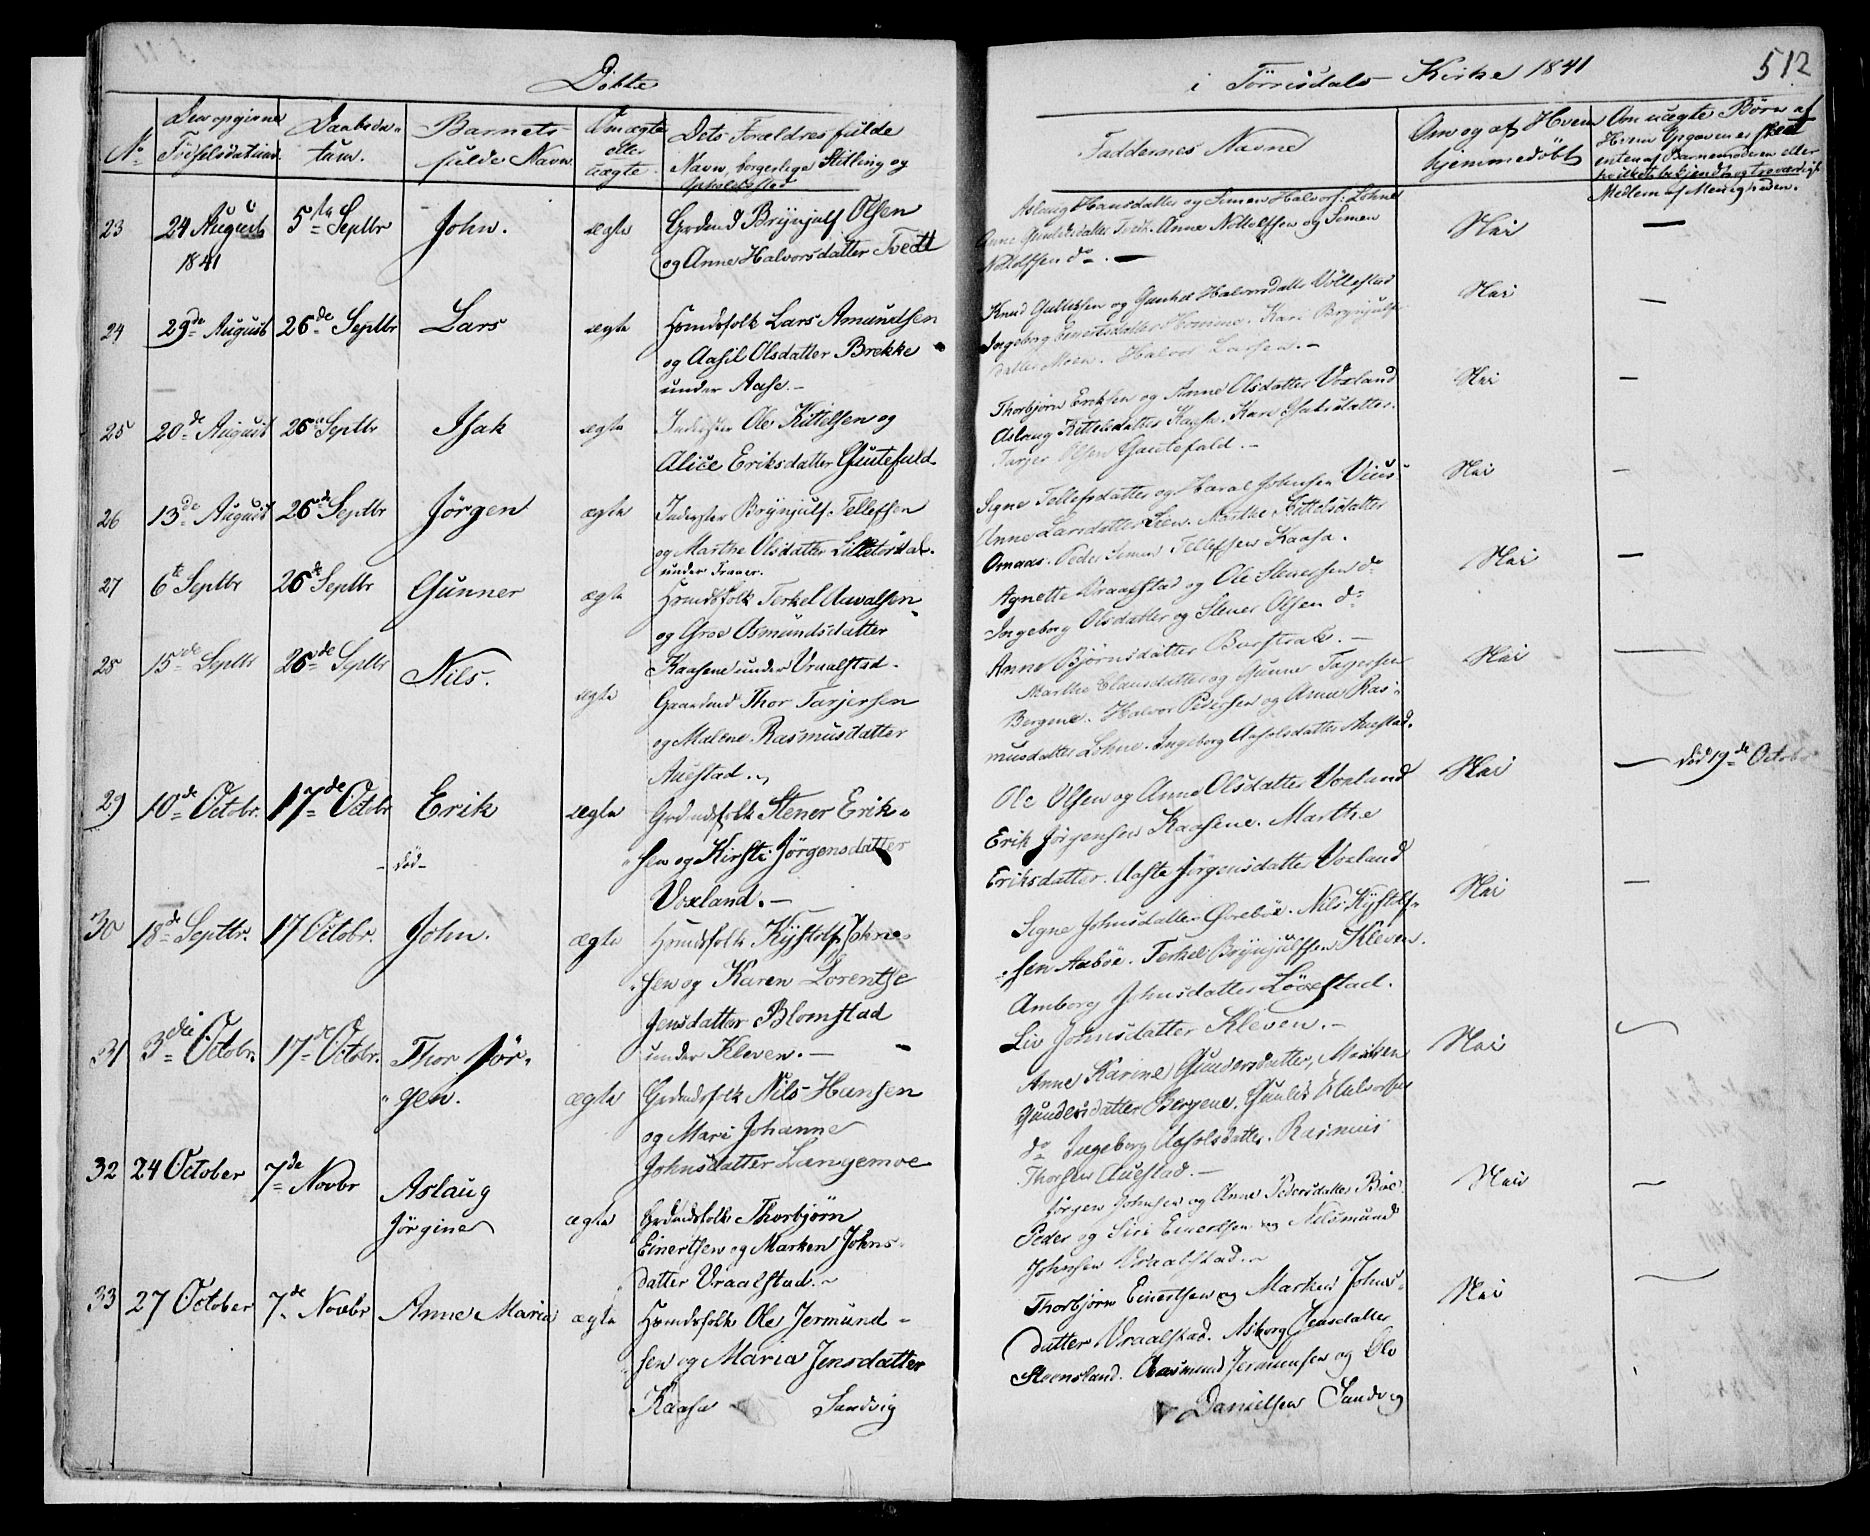 Døbte
i Törrisdals Kirke 1841
512
No
Den opgivne
Födselsdatum.
Daabsda-
tum.
Barnets
fulde Navn.
Om ægte
eller
uægte.
Dets Forældres fulde
Navn, borgerlige Stilling og
Opholdssted
Faddernes Navne
Om og af Hvem
hjemmedöbt
Om uægte Börn af
Hvem Opgaven er skeet
enten af Barnemoderen eller
Medlem af Menigheden.
23
24 August
1841
5te Septbr
John.
ægte
Grdmd Brynjulf Olsen
og Anne Halvorsdatter Tvedt
Aslaug Hansdatter og Simen Halvors: Löhne
Anne Nottolfsen og Simen
Nottolfsen do.
Nei
—
24
29de August
26de Septbr
Lars
ægte
Hsmdsfolk Lars Amundsen
og Aasil Olsdatter Brekke
under Aase.
Knud Gulliksen og Gunhil Halvorsdatter Völlestad
Ingeborg Kari Brynjulfs
datter Moen. Halvor Larsen.
Nei
—
25
20de August
26de Septbr
Isak
ægte
Inderster Ole Kittelsen og
Alice Eriksdatter Gautefald
Thorbjörn Eriksen og Anne Olsdatter Voxland
Aslaug Kittelsdatter Kaasa. Kari Isaksdatter.
Tarjer Olsen Gautefald.
Nei
—
26
13de August
26de Septbr
Jörgen
ægte
Inderster Brynjulf Tellefsen
og Marthe Olsdatter Lilletorsdal
under
Signe Tellefsdatter og Haral Johnsen
Anne Larsdatter Lien. Marthe Kittelsdatter
Omaas. Peder Simen Tellefsen Kaasa.
Nei
—
27
6te Septbr
26de Septbr
Gunner
ægte
Hsmdsfolk Terkel Auvalsen
og Groe Osmundsdatter
Kaasene under Vraalstad.
Agnette Vraalstad og Ole Stenersen do
Ingeborg Olsdatter og Stener Olsen do
Anne Björnsdatter Barstrak.
Nei
—
28
15de Septbr
26de Septbr
Nils.
ægte
Gaardmd Thor Tarjersen
og Malene Rasmusdatter
Auestad.
Marthe Clausdatter og Gunne Tarjersen
Bergene. Halvor Pedersen og Anne Ras-
musdatter Löhne. Ingeborg Aasolsdatter Auestad.
Nei
—
29
10de Octobr.
17de Octobr
Erik
död
ægte
Grdmdsfolk Stener Erik-
sen og Kirsti Jörgensdatter
Voxland.
Ole Olsen og Anne Olsdatter Voxland
Erik Jörgensen Kaasene. Marthe
Eriksdatter. Aaste Jörgensdatter Voxland
Nei
— död 19de Octobr
30
18de Septbr.
17 Octobr.
John.
ægte
Hsmdsfolk Kystolf Johne-
sen og Karen Lorentse
Jensdatter Blomstad
under Kleven.
Signe Johnsdatter Öreböe. Nils Kystolf-
sen Aaböe. Terkel Brynjulfsen Kleven.
Amborg Johnsdatter Lövestad.
Liv Johnsdatter Kleven.
Nei
—
31
3die Octobr.
17de Octobr.
Thor Jör-
gen.
ægte
Grdmdsfolk Nils Hansen
og Mari Johanne
Johnsdatter Langemoe
Anne Karine Gundersdatter, Marthen
Gundersdatter Bergene. Gunlik Halvorsen
do Ingeborg Aasolsdatter. Rasmus
Thorsen Auestad.
Nei
—
32
24 October
7de Novbr
Aslaug
Jörgine
ægte
Grdmdsfolk Thorbjörn
Einertsen og Marken Johns-
datter Vraalstad.
Jörgen Johnsen og Anne Pedersdatter Böe
Peder og Siri Einertsen og Nilsmund
Johnsen Vraalstad.
Nei
—
33
27 October
7de Novbr
Anne Maria
ægte
Hsmdsfolk Ole Jermund-
sen og Maria Jensdatter
Kaasa Sandvig
Thorbjörn Einertsen og Marken Johns-
datter Vraalstad. Asborg Jensdatter
Steensland. Aasmund Jermunsen og Ole
Danielsen Sandvig
Nei
—